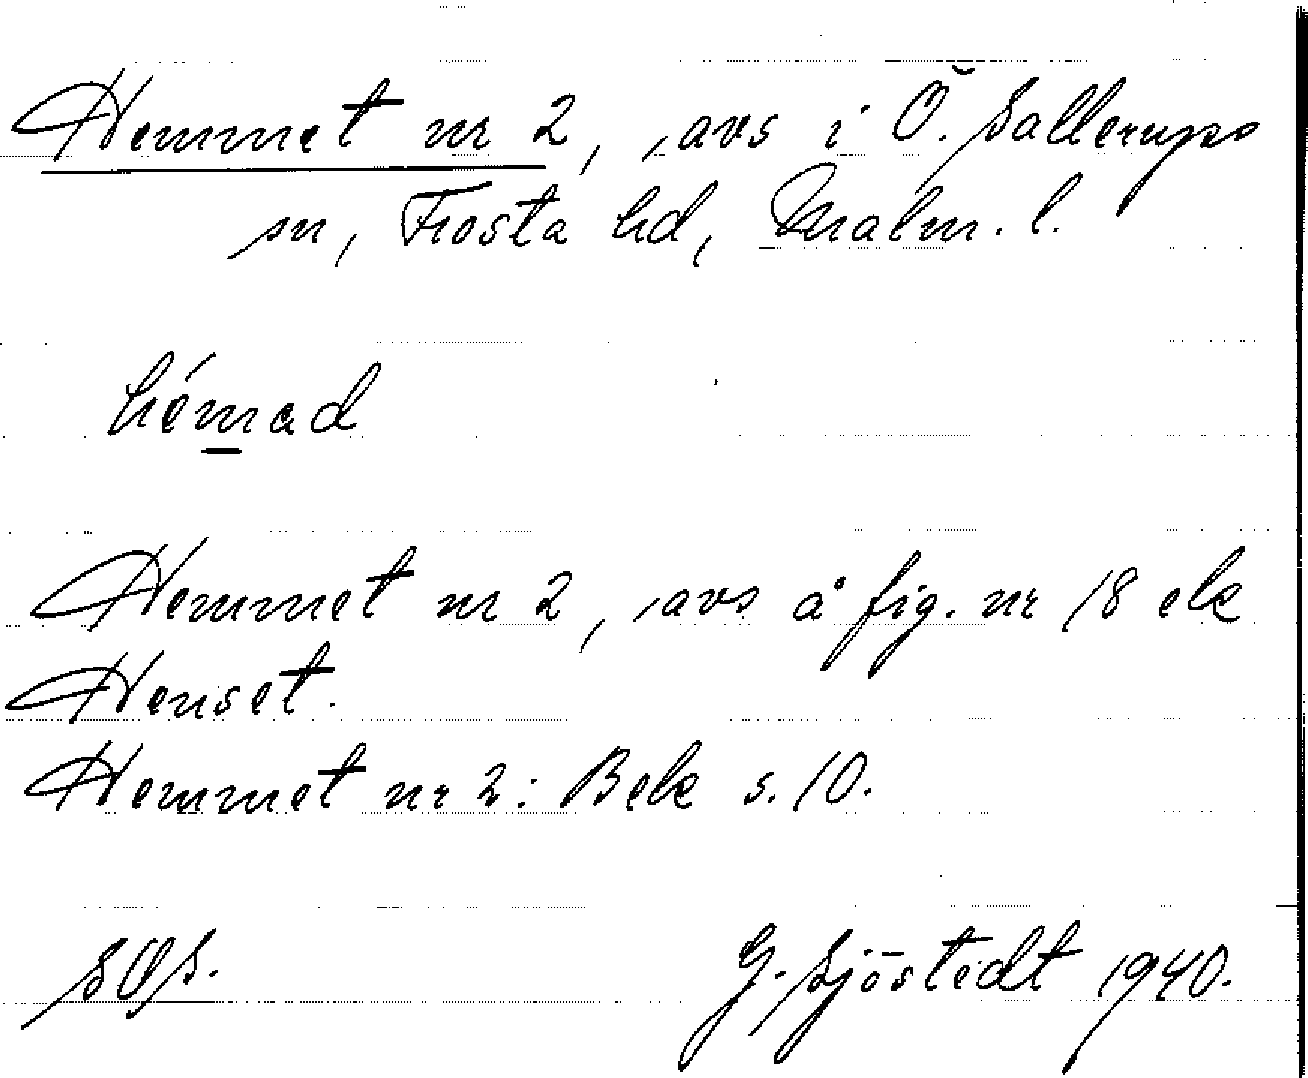 Hemmet nr 2, avs i Ö. Sallerups
sn, Frosta hd, Malm. l.
hémad
Hemmet nr 2, avs å fig. nr 18 ek
Huset.
Hemmet nr 2: Bek s. 10.
SOS.
G. Sjöstedt 1940.